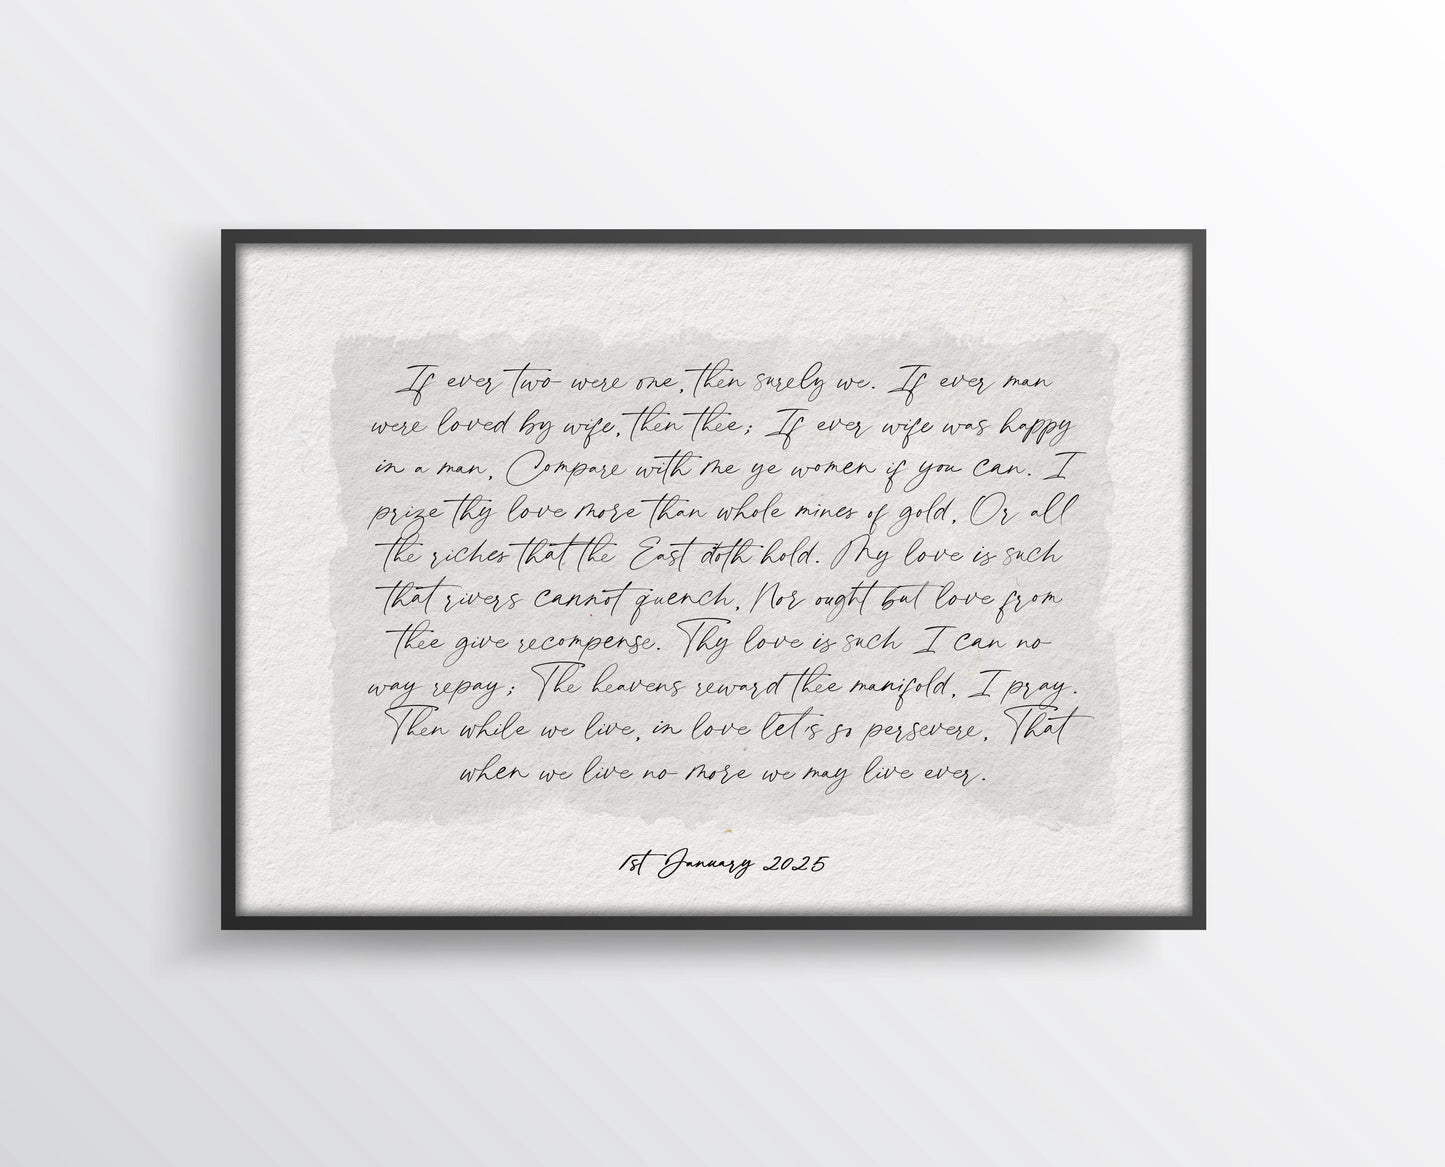 If ever two were one, then surely we. If ever man
were loved by wife, then thee; If ever wife was happy
in a man, Compare with me ye women if you can. I
prize thy love more than whole mines of gold, Or all
the riches that the East doth hold. My love is such
that rivers cannot quench, Nor ought but love from
thee give recompense. Thy love is such I can no
way repay; The heavens reward thee manifold, I pray.
Then while we live, in love let's so persevere, That
when we live no more we may live ever.
1st January 2025